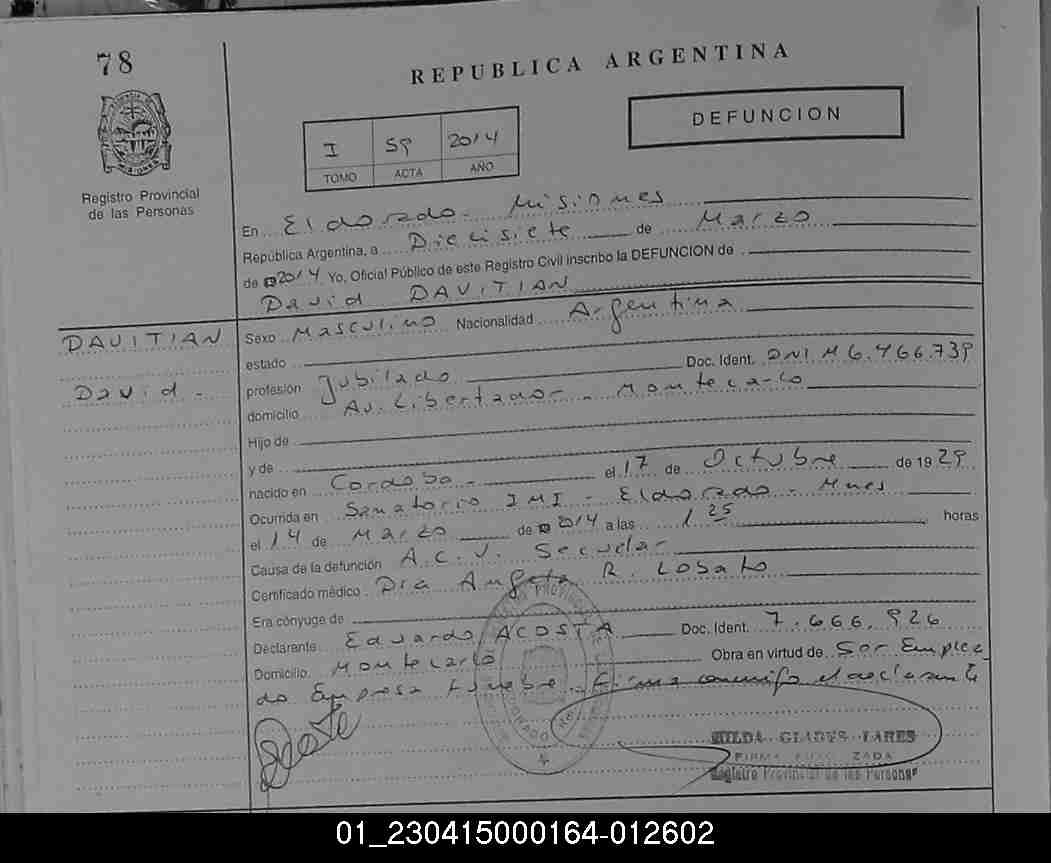 78
REPUBLICA ARGENTINA
DEFUNCION
I 59 2014
TOMO ACTA AÑO
Registro Provincial
de las Personas
En Eldorado - Misiones
República Argentina, a Diecisiete de Marzo
de 2014 Yo, Oficial Público de este Registro Civil inscribo la DEFUNCION de
David DAVITIAN
DAVITIAN
David -
Sexo Masculino Nacionalidad Argentina
estado
Doc. Ident. DNI M 6.466.739
profesión Jubilado
domicilio Av. Libertador - Montecarlo
Hijo de
y de
nacido en Cordoba - el 17 de Octubre de 1929
Ocurrida en Sanatorio IMI - Eldorado - Mnes
el 14 de Marzo de 2014 a las 1 25 horas
Causa de la defunción A.C.V. Secuelar
Certificado médico Dra Angela R. Lobato
Era cónyuge de
Declarante Eduardo ACOSTA Doc. Ident. 7.666.926
Domicilio Montecarlo Obra en virtud de Ser Emplea
do Empresa Funebre. Firma conmigo el declarante
GLADYS LARES
Registro Provincial de las Personas
01_230415000164-012602